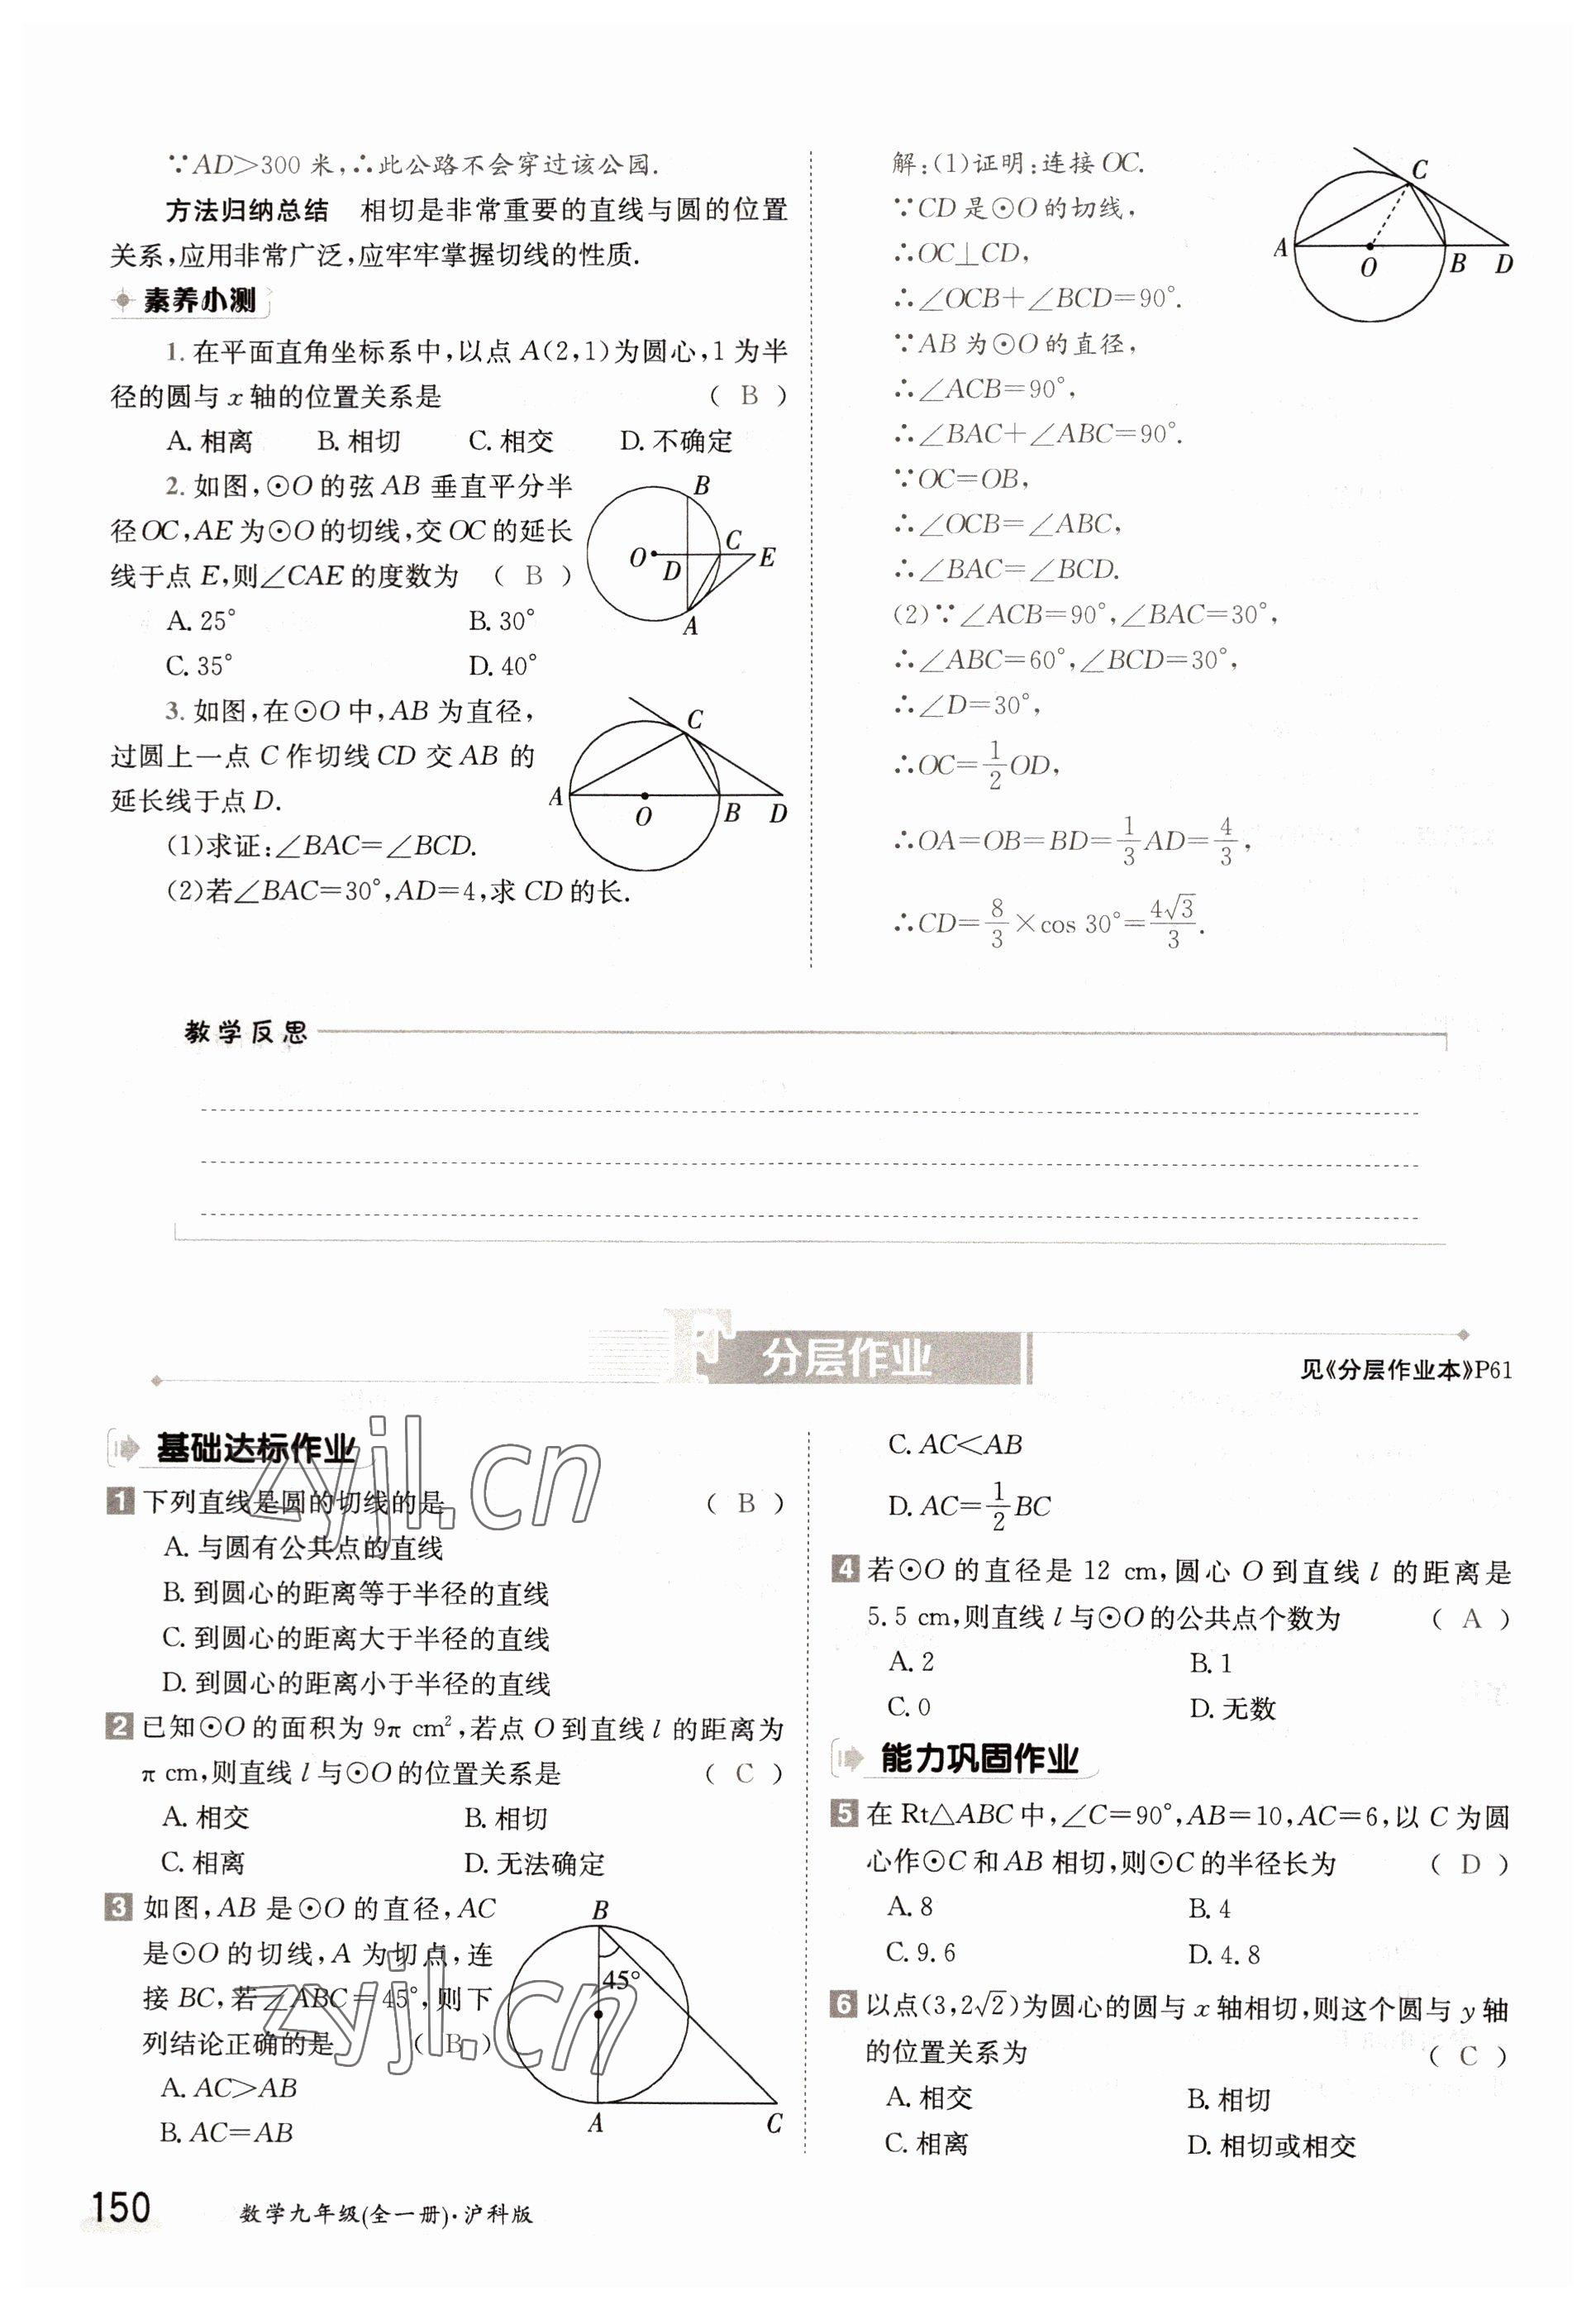 ∵AD>300 米,∴此公路不会穿过该公园.
方法归纳总结 相切是非常重要的直线与圆的位置
关系,应用非常广泛,应牢牢掌握切线的性质.
素养小测
1. 在平面直角坐标系中,以点 A(2,1)为圆心,1 为半
径的圆与 x 轴的位置关系是 ( B )
A. 相离 B. 相切 C. 相交 D. 不确定
2. 如图,⊙O 的弦 AB 垂直平分半
径OC,AE 为⊙O 的切线,交 OC 的延长
线于点 E,则∠CAE 的度数为 ( B )
A. 25° B. 30°
C. 35° D. 40°
B
O
D
C
E
A
3. 如图,在⊙O 中,AB 为直径,
过圆上一点 C 作切线 CD 交 AB 的
延长线于点 D.
(1)求证:∠BAC=∠BCD.
(2)若∠BAC=30°,AD=4,求 CD 的长.
C
A
O
B
D
解:(1)证明:连接 OC.
∵CD 是⊙O 的切线,
∴OC⊥CD,
∴∠OCB+∠BCD=90°.
∵AB 为⊙O 的直径,
∴∠ACB=90°,
∴∠BAC+∠ABC=90°.
∵OC=OB,
∴∠OCB=∠ABC,
∴∠BAC=∠BCD.
(2)∵∠ACB=90°,∠BAC=30°,
∴∠ABC=60°,∠BCD=30°,
∴∠D=30°,
∴OC=1/2 OD,
∴OA=OB=BD=1/3 AD=4/3,
∴CD=8/3×cos 30°=4√3/3.
C
A
O
B
D
教学反思
F 分层作业
见《分层作业本》P61
基础达标作业
1 下列直线是圆的切线的是 ( B )
A. 与圆有公共点的直线
B. 到圆心的距离等于半径的直线
C. 到圆心的距离大于半径的直线
D. 到圆心的距离小于半径的直线
2 已知⊙O 的面积为 9π cm²,若点 O 到直线 l 的距离为
π cm,则直线 l 与⊙O 的位置关系是 ( C )
A. 相交 B. 相切
C. 相离 D. 无法确定
3 如图,AB 是⊙O 的直径,AC
是⊙O 的切线,A 为切点,连
接 BC,若∠ABC=45°,则下
列结论正确的是 ( B )
A. AC>AB
B. AC=AB
B
45°
A
C
C. AC<AB
D. AC=1/2 BC
4 若⊙O 的直径是 12 cm,圆心 O 到直线 l 的距离是
5.5 cm,则直线 l 与⊙O 的公共点个数为 ( A )
A. 2 B. 1
C. 0 D. 无数
能力巩固作业
5 在 Rt△ABC 中,∠C=90°,AB=10,AC=6,以 C 为圆
心作⊙C 和 AB 相切,则⊙C 的半径长为 ( D )
A. 8 B. 4
C. 9.6 D. 4.8
6 以点(3,2√2)为圆心的圆与 x 轴相切,则这个圆与 y 轴
的位置关系为 ( C )
A. 相交 B. 相切
C. 相离 D. 相切或相交
zyjl.cn
zyjl.cn
150 数学九年级(全一册)·沪科版